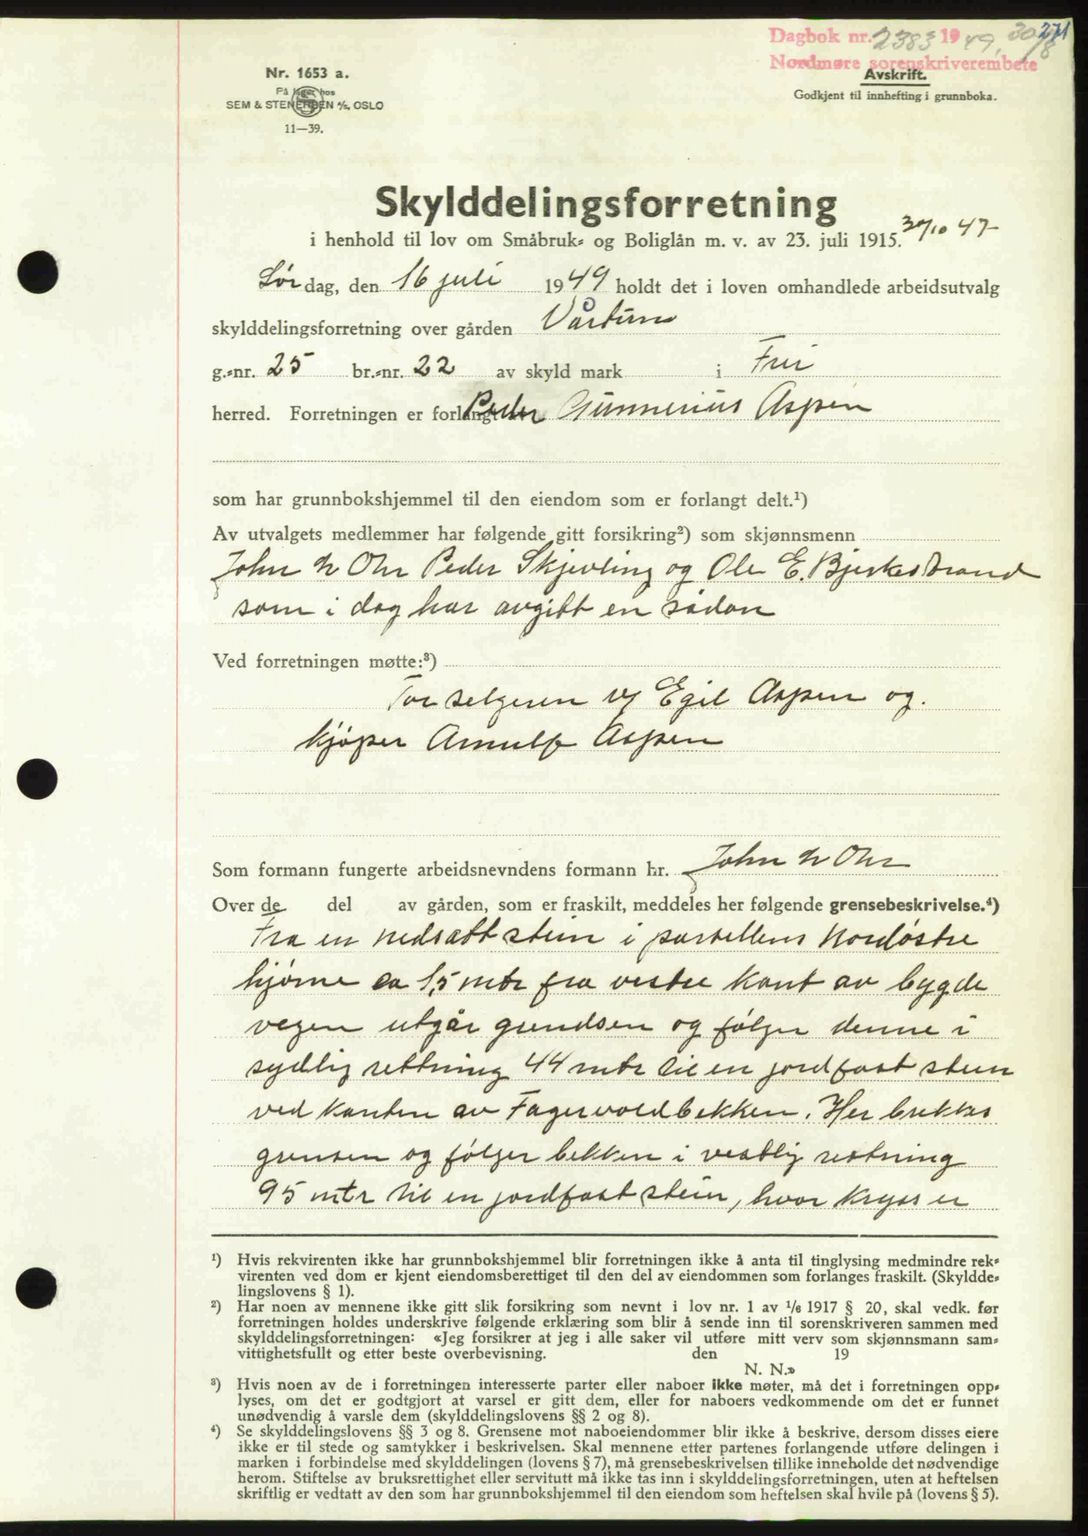 271
Dagbok nr. 2383 1949, 30/8
Nordmøre sorenskriverembete
Nr. 1653 a.
På lager hos
SEM & STENERSEN A/S, OSLO
11—39.
Avskrift.
Godkjent til innhefting i grunnboka.
Skylddelingsforretning
i henhold til lov om Småbruk- og Boliglån m. v. av 23. juli 1915.
Lørdag, den 16 juli 1949 holdt det i loven omhandlede arbeidsutvalg
skylddelingsforretning over gården Vårtun
g.-nr. 25 br.-nr. 22 av skyld mark i Frei
herred. Forretningen er forlangt Peder Gunnerius Aspen
som har grunnbokshjemmel til den eiendom som er forlangt delt.¹)
Av utvalgets medlemmer har følgende gitt forsikring²) som skjønnsmenn
John N Ohr Peder Skjevling og Ole E. Bjerkestrand
som i dag har avgitt en sådan
Ved forretningen møtte:³)
For selgeren v/ Egil Aspen og
kjøper Arnulf Aspen
Som formann fungerte arbeidsnevndens formann hr. John N Ohr
Over de del av gården, som er fraskilt, meddeles her følgende grensebeskrivelse.⁴)
Fra en nedsatt stein i parsellens Nordøstre
hjørne ca 1,5 mtr fra vestre kant av bygde
vegen utgår grendsen og følger denne i
sydlig rettning 44 mtr til en jordfast stein
ved kanten av Fagervoldbekken. Her brekkes
grensen og følger bekken i vestlig rettning
95 mtr til en jordfast stein, hvor kryss er
¹) Hvis rekvirenten ikke har grunnbokshjemmel blir forretningen ikke å anta til tinglysing medmindre rek-
virenten ved dom er kjent eiendomsberettiget til den del av eiendommen som forlanges fraskilt. (Skyldde-
lingslovens § 1).
²) Har noen av mennene ikke gitt slik forsikring som nevnt i lov nr. 1 av 1/6 1917 § 20, skal vedk. før
forretningen holdes underskrive følgende erklæring som blir å sende inn til sorenskriveren sammen med
skylddelingsforretningen: «Jeg forsikrer at jeg i alle saker vil utføre mitt verv som skjønnsmann sam-
vittighetsfullt og etter beste overbevisning. den 19
N. N.»
³) Hvis noen av de i forretningen interesserte parter eller naboer ikke møter, må det i forretningen opp-
lyses, om det er godtgjort at varsel er gitt dem, eller for naboers vedkommende om det er funnet
unødvendig å varsle dem (skylddelingslovens §§ 2 og 8).
⁴) Se skylddelingslovens §§ 3 og 8. Grensene mot naboeiendommer blir ikke å beskrive, dersom disses eiere
ikke er til stede og samtykker i beskrivelsen. Skal mennene etter partenes forlangende utføre delingen i
marken i forbindelse med skylddelingen (lovens § 7), må grensebeskrivelsen tillike inneholde det nødvendige
herom. Stiftelse av bruksrettighet eller servitutt må ikke tas inn i skylddelingsforretningen, uten at heftelsen
skriftlig er vedtatt av den som har grunnbokshjemmel til den eiendom som heftelsen skal hvile på (lovens § 5).